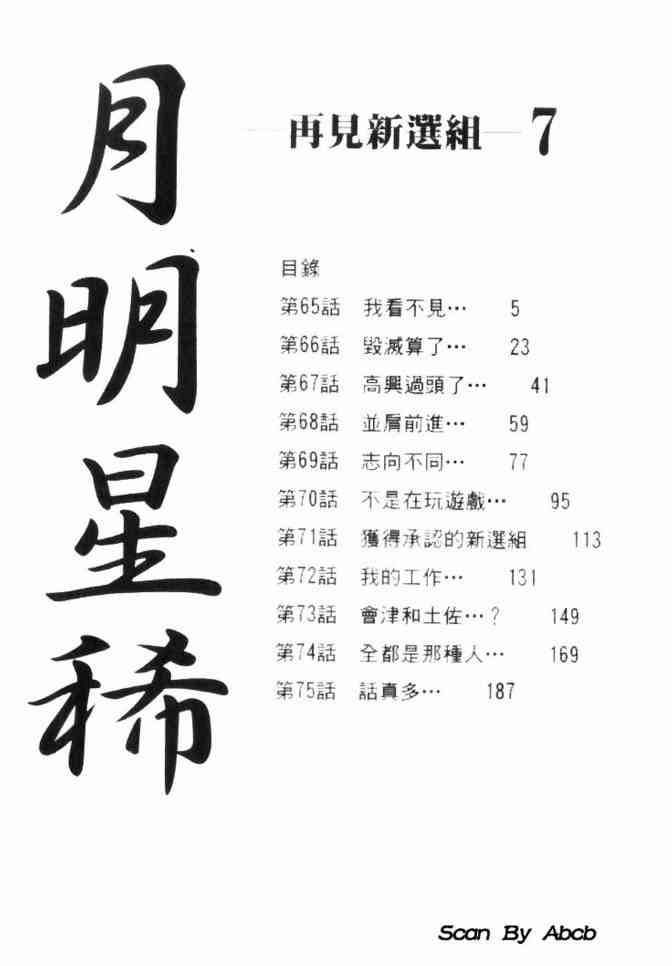 月明星稀
再見新選組 7
目錄
第65話 我看不見… 5
第66話 毀滅算了… 23
第67話 高興過頭了… 41
第68話 並肩前進… 59
第69話 志向不同… 77
第70話 不是在玩遊戲… 95
第71話 獲得承認的新選組 113
第72話 我的工作… 131
第73話 會津和土佐…? 149
第74話 全都是那種人… 169
第75話 話真多… 187
Scan By Abcb